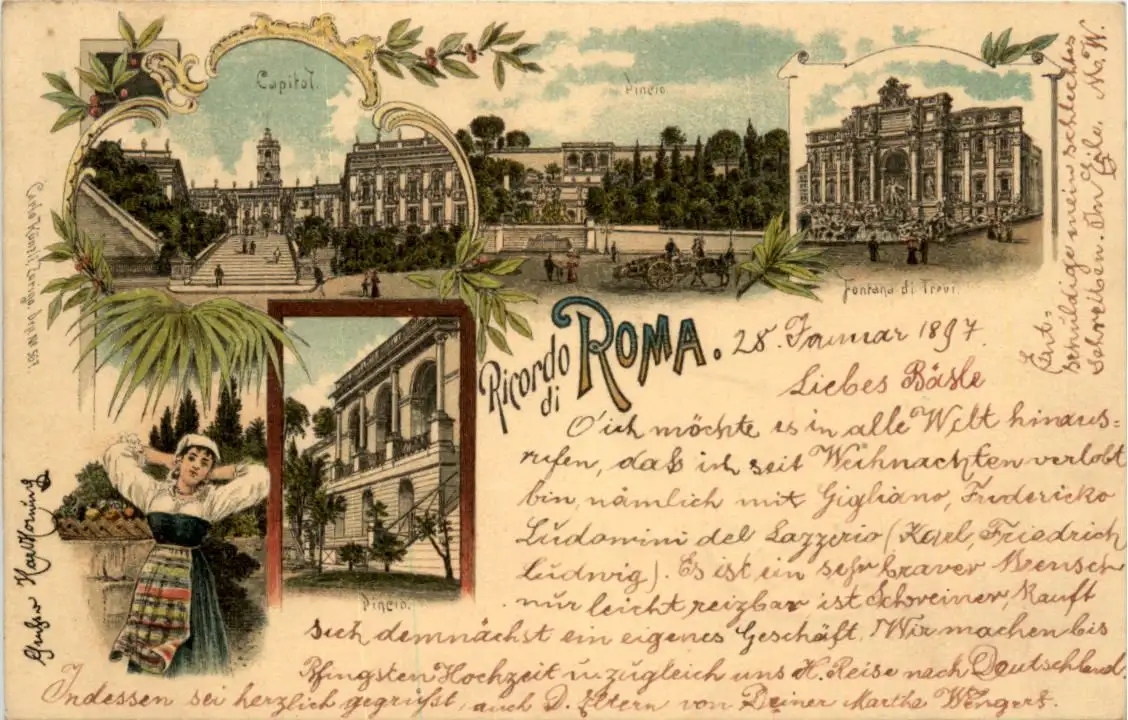 Capitol.
Pincio.
Fontana di Trevi.
Pincio.
Ricordo
di
ROMA.
28. Januar 1897.
Liebes Bäsle
O ich möchte es in alle Welt hinaus=
rufen, daß ich seit Weihnachten verlobt
bin, nämlich mit Gigliano, Fredericko
Ludomini del Lazzerio (Karl, Friedrich
Ludwig). Es ist ein sehr braver Mensch
nur leicht reizbar ist Schreiner, Kauft
sich demnächst ein eigenes Geschäft. Wir machen bis
Pfingsten Hochzeit u. zugleich uns. H. Reise nach Deutschland.
Indessen sei herzlich gegrüßt, auch D. Eltern von Deiner Martha Wengert.
Ent-
schuldige mein schlechtes
Schreiben. In Eile. M. W.
Karl Hornung